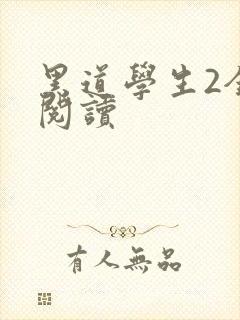 黑道學生2全
閱讀
有人無品